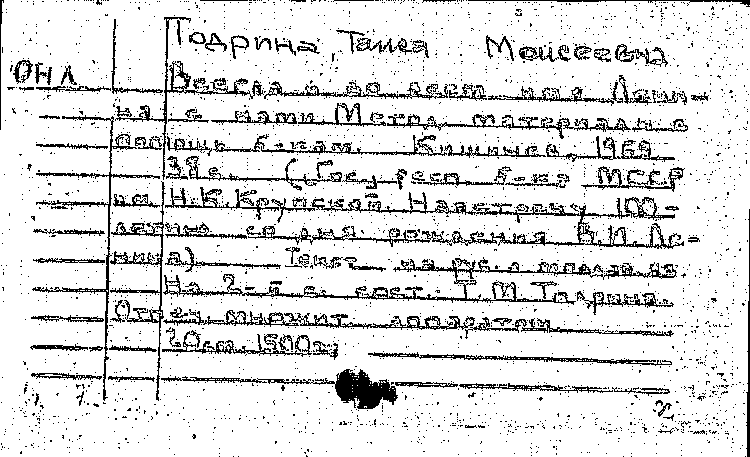 Подрина, Таися Моисеевна
ОНЛ
Всегда и во всем имя Лени-
на с нами. Метод. материалы в
помощь б-кам. Кишинев, 1969
38 с. (Гос. респ. б-ка МССР
им Н.К.Крупской. Навстречу 100-
летию со дня рождения В.И. Ле-
нина) Текст на рус. и молдав. яз.
На 2-й с. сост.: Т.М.Тодрина.
Отпеч. множит. аппаратом
20 см. 1500 экз